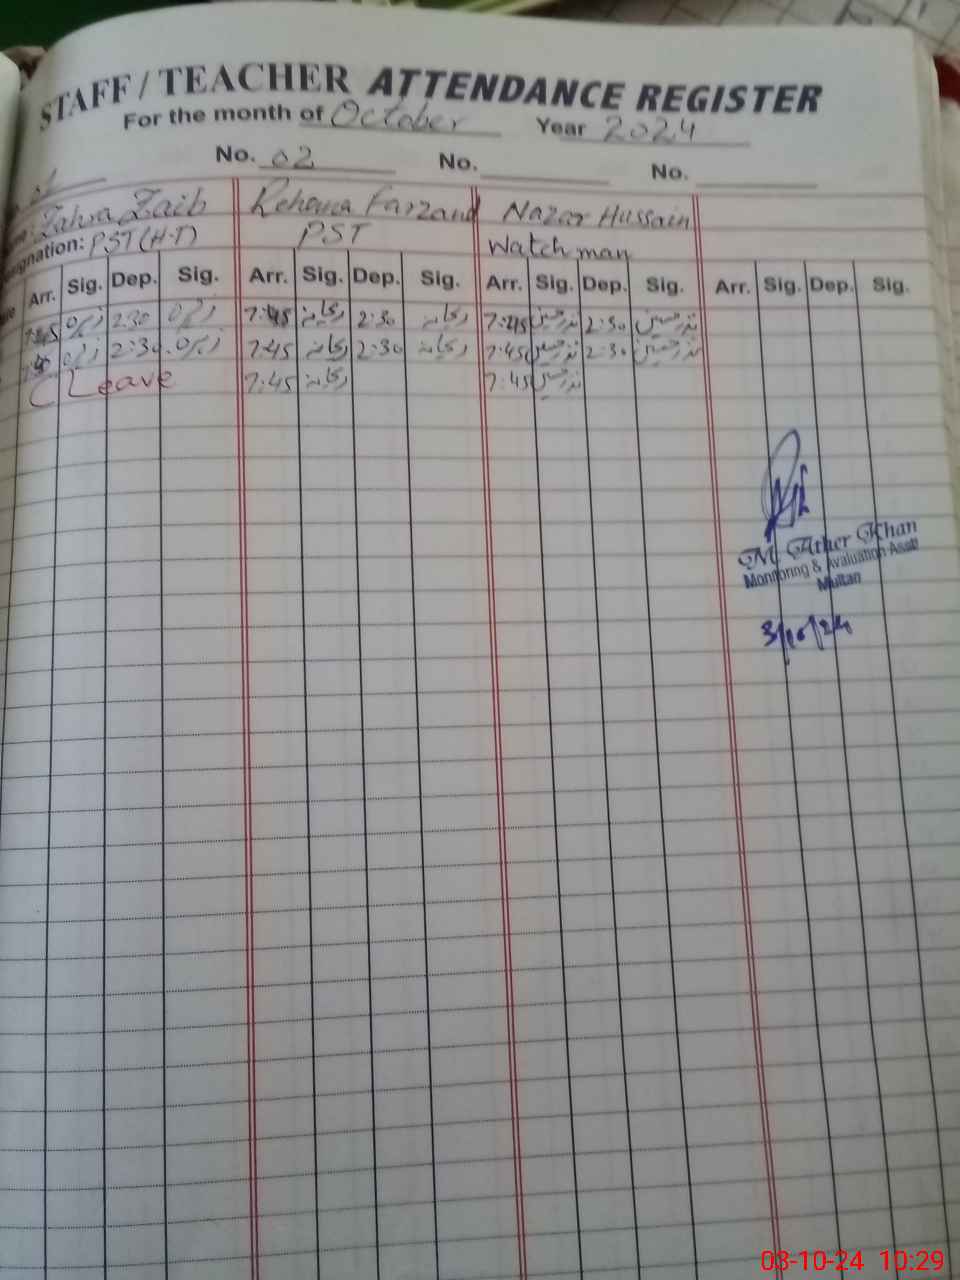 STAFF / TEACHER ATTENDANCE REGISTER
For the month of October Year 2024
No. 02 No. No.
Zahra Zaib Rehana Farzand Nazar Hussain
Designation: PST (H-T) PST Watch man
Arr. Sig. Dep. Sig. Arr. Sig. Dep. Sig. Arr. Sig. Dep. Sig. Arr. Sig. Dep. Sig.
7:45 زہرہ 2:30 زہرہ 7:45 ریحانہ 2:30 ریحانہ 7:45 نذر حسین 2:30 نذر حسین
زہرہ 2:30 زہرہ 7:45 ریحانہ 2:30 ریحانہ 7:45 نذر حسین 2:30 نذر حسین
C Leave 7:45 ریحانہ 7:45 نذر حسین
M. Ather Khan
Monitoring & Evaluation Asstt
Multan
3/10/24
03-10-24 10:29